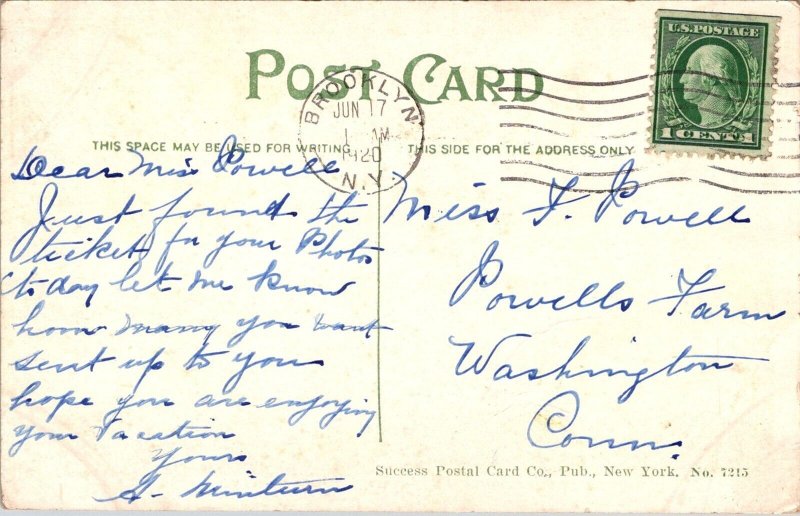 POST CARD
BROOKLYN
JUN 17
1 AM
1920
N.Y.
U.S. POSTAGE
1 CENT 1
THIS SPACE MAY BE USED FOR WRITING
THIS SIDE FOR THE ADDRESS ONLY
Dear Miss Powell
Just found the
ticket for your Photos
today let me know
how many you want
sent up to you
hope you are enjoying
your Vacation
Yours
Minturn
Miss F. Powell
Powells Farm
Washington
Conn.
Success Postal Card Co., Pub., New York. No. 7215